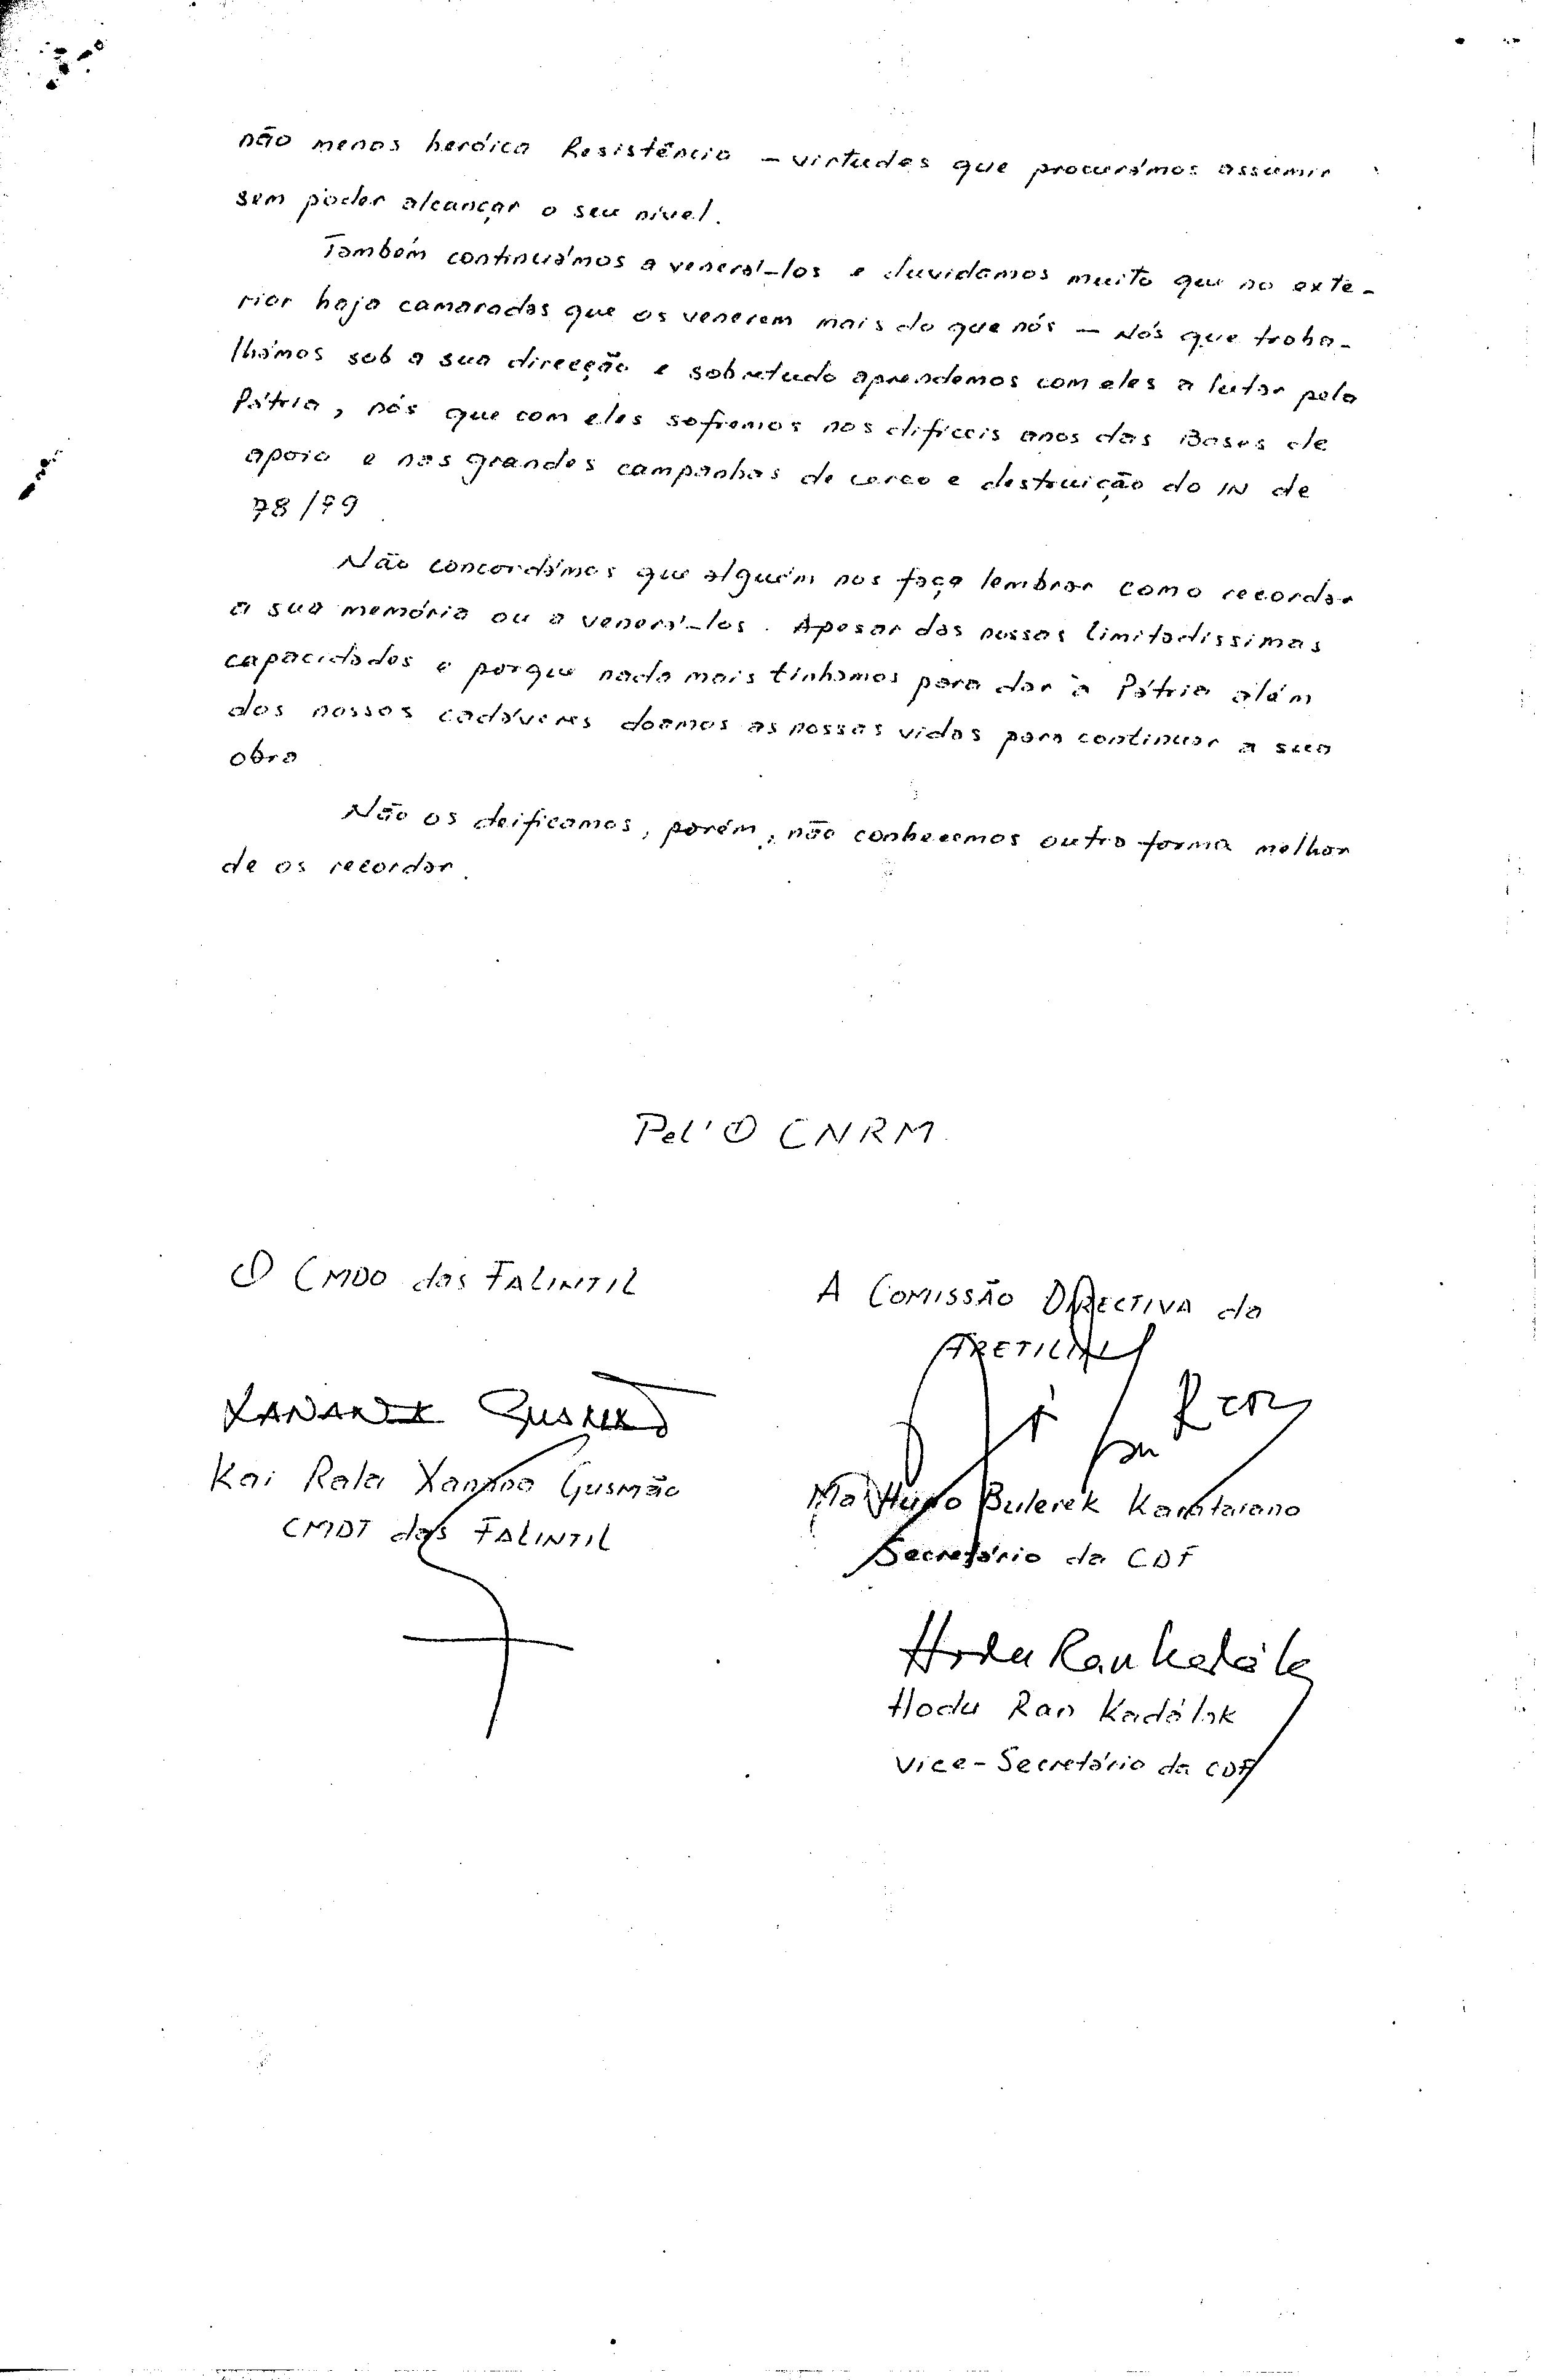 não menos heróica Resistência – virtudes que procurámos assumir
sem poder alcançar o seu nível.
Também continuámos a venerá-los e duvidamos muito que no exte-
rior haja camaradas que os venerem mais do que nós – Nós que traba-
lhámos sob a sua direcção e sobretudo aprendemos com eles a lutar pela
Pátria, nós que com eles sofremos nos difíceis anos das Bases de
apoio e nas grandes campanhas de cerco e destruição do IN de
78/79
Não concordámos que alguém nos faça lembrar como recordar
a sua memória ou a venerá-los. Apesar das nossas limitadíssimas
capacidades e porque nada mais tínhamos para dar à Pátria além
dos nossos cadáveres doamos as nossas vidas para continuar a sua
obra
Não os deificamos, porém, não conhecemos outra forma melhor
de os recordar.
Pel'O CNRM
O CMDO das FALINTIL
A COMISSÃO DIRECTIVA da
FRETILIN
XANANA GUSMÃO
Kai Rala Xanana Gusmão
CMDT das FALINTIL
Ma'Huno Bulerek Karataiano
Secretário da CDF
Hodu Ran Kadálak
Hodu Ran Kadálak
Vice-Secretário da CDF